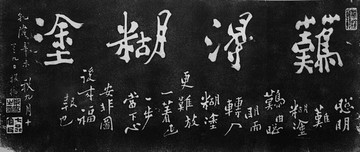 難得糊塗
聰明
難
糊塗
難由聰
明而
轉入
糊塗
更難放
一著退
一步
當下心
安非圖
後來福
報也
乾隆辛未秋九月